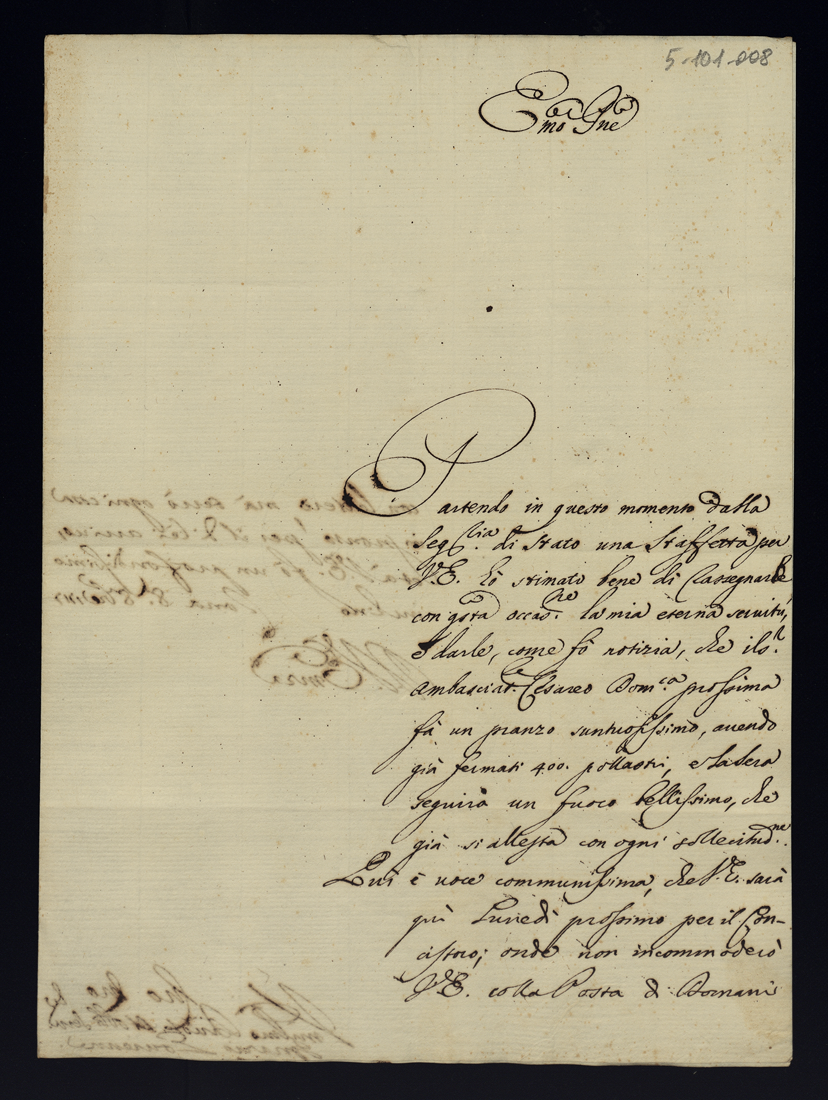 5-101-008
Emo Pne
Partendo in questo momento dalla
Seg.ria di Stato una Staffetta per
V.E. hò stimato bene di rassegnarle
con qsta occas.ne la mia eterna servitù,
e darle, come fò notizia, che il S.r
Ambasciat.re Cesareo Dom.ca prossima
fà un pranzo suntuosissimo, avendo
già fermati 400. pollastri, e la sera
seguirà un fuoco bellissimo, che
già si allesta con ogni sollecitud.ne.
Quì è voce communissima, che V.E. sarà
quì Lunedì prossimo per il Con-
cistoro; onde non incommoderò
V.E. colla Posta di Domani